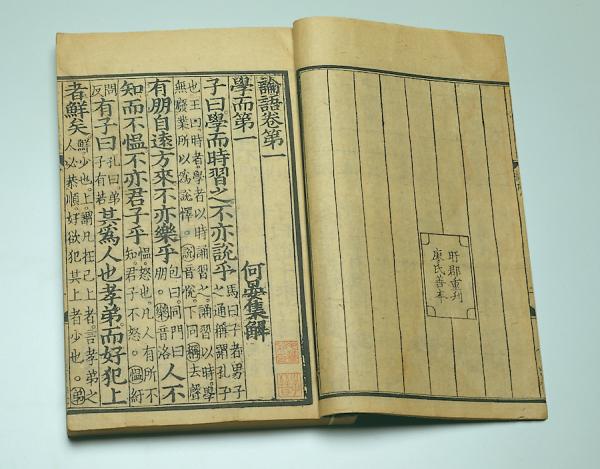 旴郡重刊
廖氏善本
論語卷第一
學而第一 何晏集解
子曰學而時習之不亦說乎 馬曰子者男子
之通稱謂孔子
也王曰時者學者以時誦習之。誦習以時。學
無廢業所以為說懌。說音悅。下同。稱去聲
有朋自遠方來不亦樂乎 包曰同門曰
朋。樂音洛 人不
知而不愠不亦君子乎 愠怒也。凡人有所不
知。君子不怒。愠紆
問
反 有子曰 孔曰弟
子有若 其為人也孝弟而好犯上
者鮮矣 鮮少也。上謂凡在己上者。言孝弟之
人必恭順。好欲犯其上者少也。弟